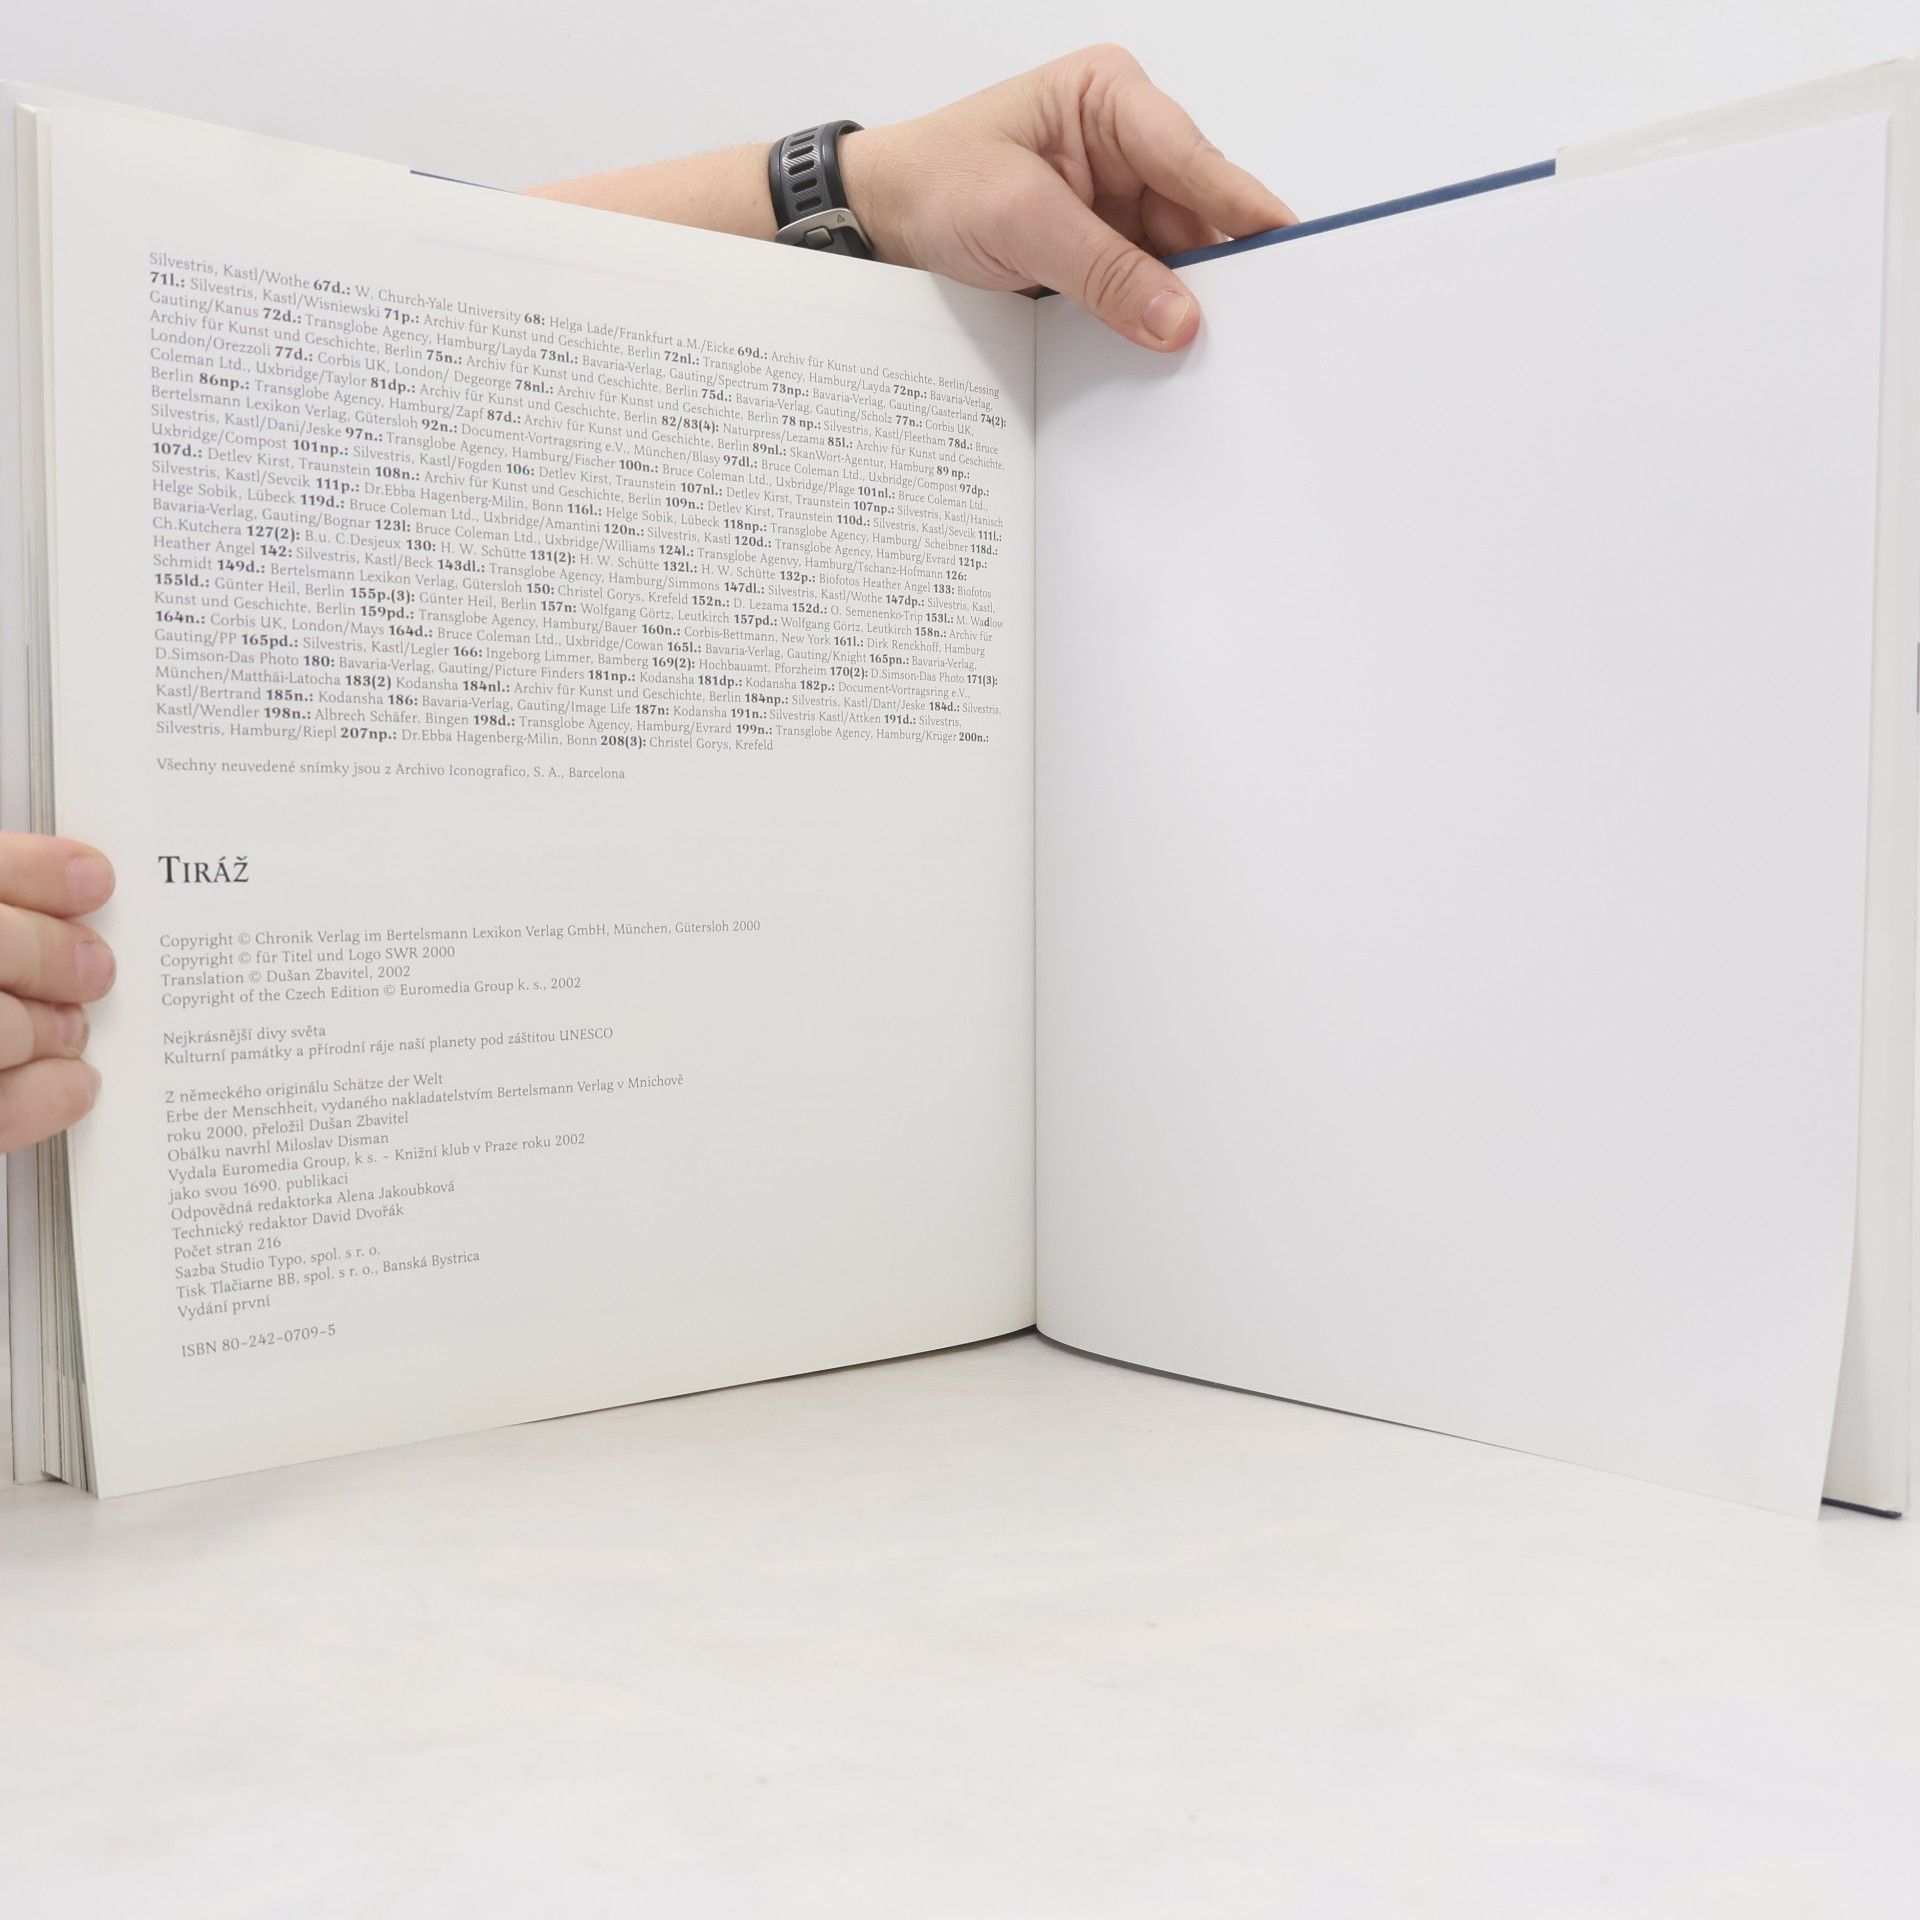 Silvestris, Kastl/Wothe 67d.: W. Church-Yale University 68: Helga Lade/Frankfurt a.M./Eicke 69d.: Archiv für Kunst und Geschichte, Berlin/Lessing
71l.: Silvestris, Kastl/Wisniewski 71p.: Archiv für Kunst und Geschichte, Berlin 72nl.: Transglobe Agency, Hamburg/Layda 72np.: Bavaria-Verlag,
Gauting/Kanus 72d.: Transglobe Agency, Hamburg/Layda 73nl.: Bavaria-Verlag, Gauting/Spectrum 73np.: Bavaria-Verlag, Gauting/Gasterland 74(2):
Archiv für Kunst und Geschichte, Berlin 75n.: Archiv für Kunst und Geschichte, Berlin 75d.: Bavaria-Verlag, Gauting/Scholz 77n.: Corbis UK,
London/Orezzoli 77d.: Corbis UK, London/ Degeorge 78nl.: Archiv für Kunst und Geschichte, Berlin 78 np.: Silvestris, Kastl/Fleetham 78d.: Bruce
Coleman Ltd., Uxbridge/Taylor 81dp.: Archiv für Kunst und Geschichte, Berlin 82/83(4): Naturpress/Lezama 85l.: Archiv für Kunst und Geschichte,
Berlin 86np.: Transglobe Agency, Hamburg/Zapf 87d.: Archiv für Kunst und Geschichte, Berlin 89nl.: SkanWort-Agentur, Hamburg 89 np.:
Bertelsmann Lexikon Verlag, Gütersloh 92n.: Document-Vortragsring e.V., München/Blasy 97dl.: Bruce Coleman Ltd., Uxbridge/Compost 97dp.:
Silvestris, Kastl/Dani/Jeske 97n.: Transglobe Agency, Hamburg/Fischer 100n.: Bruce Coleman Ltd., Uxbridge/Plage 101nl.: Bruce Coleman Ltd.,
Uxbridge/Compost 101np.: Silvestris, Kastl/Fogden 106: Detlev Kirst, Traunstein 107nl.: Detlev Kirst, Traunstein 107np.: Silvestris, Kastl/Hanisch
107d.: Detlev Kirst, Traunstein 108n.: Archiv für Kunst und Geschichte, Berlin 109n.: Detlev Kirst, Traunstein 110d.: Silvestris, Kastl/Sevcik 111l.:
Silvestris, Kastl/Sevcik 111p.: Dr.Ebba Hagenberg-Milin, Bonn 116l.: Helge Sobik, Lübeck 118np.: Transglobe Agency, Hamburg/ Scheibner 118d.:
Helge Sobik, Lübeck 119d.: Bruce Coleman Ltd., Uxbridge/Amantini 120n.: Silvestris, Kastl 120d.: Transglobe Agency, Hamburg/Evrard 121p.:
Bavaria-Verlag, Gauting/Bognar 123l: Bruce Coleman Ltd., Uxbridge/Williams 124l.: Transglobe Agenvy, Hamburg/Tschanz-Hofmann 126:
Ch.Kutchera 127(2): B.u. C.Desjeux 130: H. W. Schütte 131(2): H. W. Schütte 132l.: H. W. Schütte 132p.: Biofotos Heather Angel 133: Biofotos
Heather Angel 142: Silvestris, Kastl/Beck 143dl.: Transglobe Agency, Hamburg/Simmons 147dl.: Silvestris, Kastl/Wothe 147dp.: Silvestris, Kastl,
Schmidt 149d.: Bertelsmann Lexikon Verlag, Gütersloh 150: Christel Gorys, Krefeld 152n.: D. Lezama 152d.: O. Semenenko-Trip 153l.: M. Wadlow
155ld.: Günter Heil, Berlin 155p.(3): Günter Heil, Berlin 157n: Wolfgang Görtz, Leutkirch 157pd.: Wolfgang Görtz, Leutkirch 158n.: Archiv für
Kunst und Geschichte, Berlin 159pd.: Transglobe Agency, Hamburg/Bauer 160n.: Corbis-Bettmann, New York 161l.: Dirk Renckhoff, Hamburg
164n.: Corbis UK, London/Mays 164d.: Bruce Coleman Ltd., Uxbridge/Cowan 165l.: Bavaria-Verlag, Gauting/Knight 165pn.: Bavaria-Verlag,
Gauting/PP 165pd.: Silvestris, Kastl/Legler 166: Ingeborg Limmer, Bamberg 169(2): Hochbauamt, Pforzheim 170(2): D.Simson-Das Photo 171(3):
D.Simson-Das Photo 180: Bavaria-Verlag, Gauting/Picture Finders 181np.: Kodansha 181dp.: Kodansha 182p.: Document-Vortragsring e.V.,
München/Matthäi-Latocha 183(2) Kodansha 184nl.: Archiv für Kunst und Geschichte, Berlin 184np.: Silvestris, Kastl/Dant/Jeske 184d.: Silvestris,
Kastl/Bertrand 185n.: Kodansha 186: Bavaria-Verlag, Gauting/Image Life 187n: Kodansha 191n.: Silvestris Kastl/Attken 191d.: Silvestris,
Kastl/Wendler 198n.: Albrech Schäfer, Bingen 198d.: Transglobe Agency, Hamburg/Evrard 199n.: Transglobe Agency, Hamburg/Krüger 200n.:
Silvestris, Hamburg/Riepl 207np.: Dr.Ebba Hagenberg-Milin, Bonn 208(3): Christel Gorys, Krefeld
Všechny neuvedené snímky jsou z Archivo Iconografico, S. A., Barcelona
TIRÁŽ
Copyright © Chronik Verlag im Bertelsmann Lexikon Verlag GmbH, München, Gütersloh 2000
Copyright © für Titel und Logo SWR 2000
Translation © Dušan Zbavitel, 2002
Copyright of the Czech Edition © Euromedia Group k. s., 2002
Nejkrásnější divy světa
Kulturní památky a přírodní ráje naší planety pod záštitou UNESCO
Z německého originálu Schätze der Welt
Erbe der Menschheit, vydaného nakladatelstvím Bertelsmann Verlag v Mnichově
roku 2000, přeložil Dušan Zbavitel
Obálku navrhl Miloslav Disman
Vydala Euromedia Group, k s. – Knižní klub v Praze roku 2002
jako svou 1690. publikaci
Odpovědná redaktorka Alena Jakoubková
Technický redaktor David Dvořák
Počet stran 216
Sazba Studio Typo, spol. s r. o.
Tisk Tlačiarne BB, spol. s r. o., Banská Bystrica
Vydání první
ISBN 80-242-0709-5